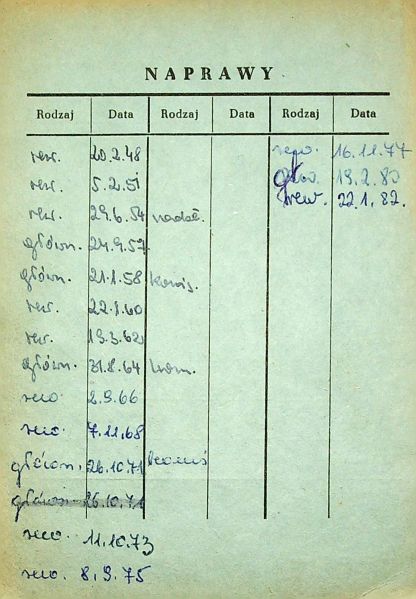 NAPRAWY
Rodzaj Data Rodzaj Data Rodzaj Data
rew. 20.2.48
rew. 5.2.51
rew. 29.6.54 nadzł.
główn. 24.9.57
główn. 21.1.58
rew. 22.1.60
rew. 19.3.62
główn. 31.8.64
rew. 2.9.66
rew. 7.11.68
główn. 26.10.71
główn. 26.10.71
rew. 11.10.73
rew. 8.9.75
16.11.77
19.2.80
rew. 22.1.82.